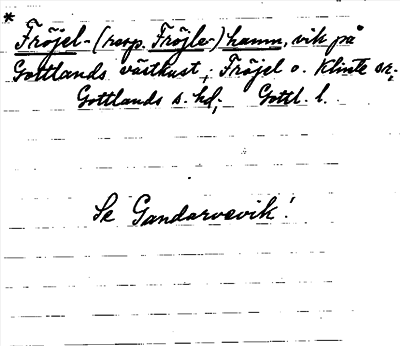 * Fröjel- (resp. Fröjle-) hamn, vik på
Gottlands västkust; Fröjel o. Klinte sn;
Gottlands s. hd; Gottl. l.
Se Gandarvevik!